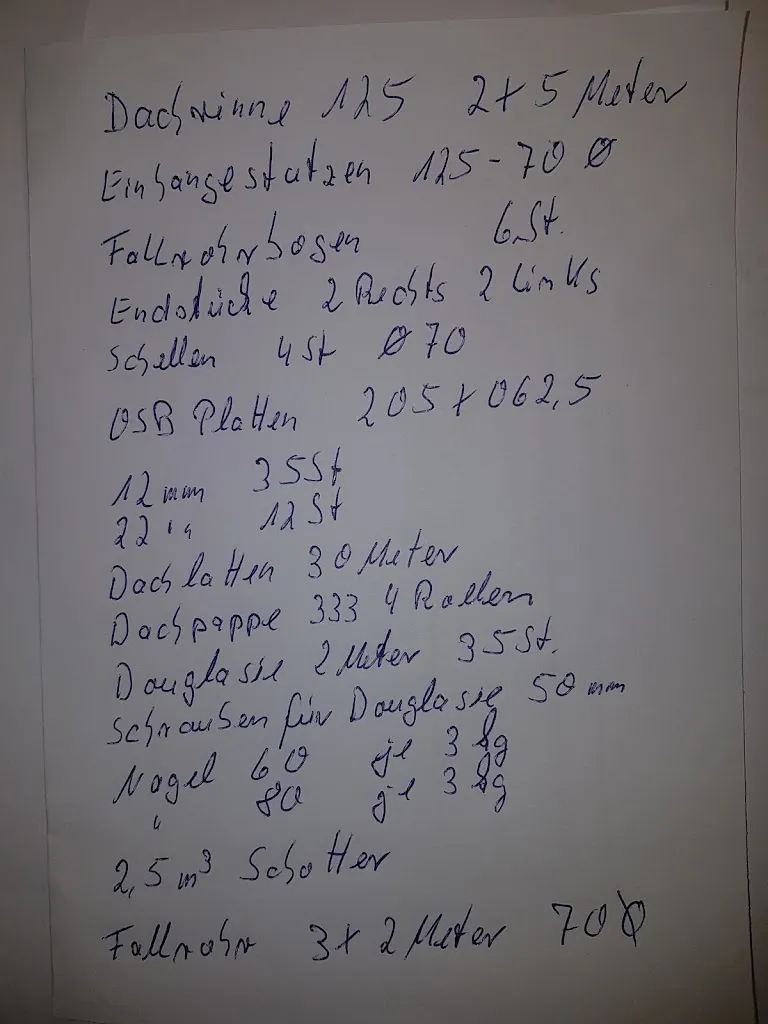 Dachrinne 125 2x5 Meter
Einhangestutzen 125-70 Ø
Fallrohrbogen 6 St.
Endstücke 2 Rechts 2 Links
Schellen 4 St Ø 70
OSB Platten 205 x 062,5
12 mm 35 St
22 " 12 St
Dachlatten 30 Meter
Dachpappe 333 4 Rollen
Douglasie 2 Meter 35 St.
Schrauben für Douglasie 50 mm
Nagel 60 je 3 kg
" 80 je 3 kg
2,5 m³ Schotter
Fallrohr 3x2 Meter 70 Ø